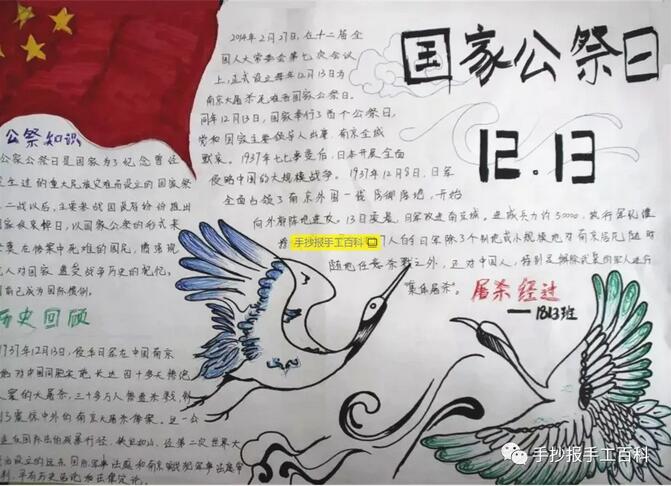 国家公祭日
12.13
2014年2月27日，在十二届全
国人大常委会第七次会议
上，正式设立每年12月13日为
南京大屠杀死难者国家公祭日。
同年12月13日，国家举行了首个公祭日，
党和国家主要领导人出席，南京全城
默哀。1937年七七事变后，日本开展全面
侵略中国的大规模战争。1937年12月8日，日军
全面占领了南京外围一线防御阵地，开始
向外廓阵地进攻。13日凌晨，日军攻进南京城。进城兵力约50000，执行军纪维
人白日军除了个别地或小规模地对南京居民随时
随地任意杀戮之外，还对中国人，特别是解除武装的军人进行
"集体屠杀"。
屠杀经过
——1813班
公祭知识
公家公祭日是国家为了纪念曾经
发生过的重大民族灾难而设立的国家祭
二战以后，主要参战国政府纷纷推出
国家级哀悼日，以国家公祭的形式来
在惨案中死难的国民，增强现
人对国家遭受战争历史的记忆。
前已成为国际惯例。
历史回顾
1937年12月13日，侵华日军在中国南京
始对中国同胞实施长达四十多天惨绝
人寰的大屠杀，三十多万人惨遭杀戮，制
了震惊中外的南京大屠杀惨案。这一公
违反国际法的残暴行径，铁证如山，经第二次世界大
后设立的远东国际军事法庭和南京战犯军事法庭审
判，早有历史结论和法律定论。
手抄报手工百科
手抄报手工百科